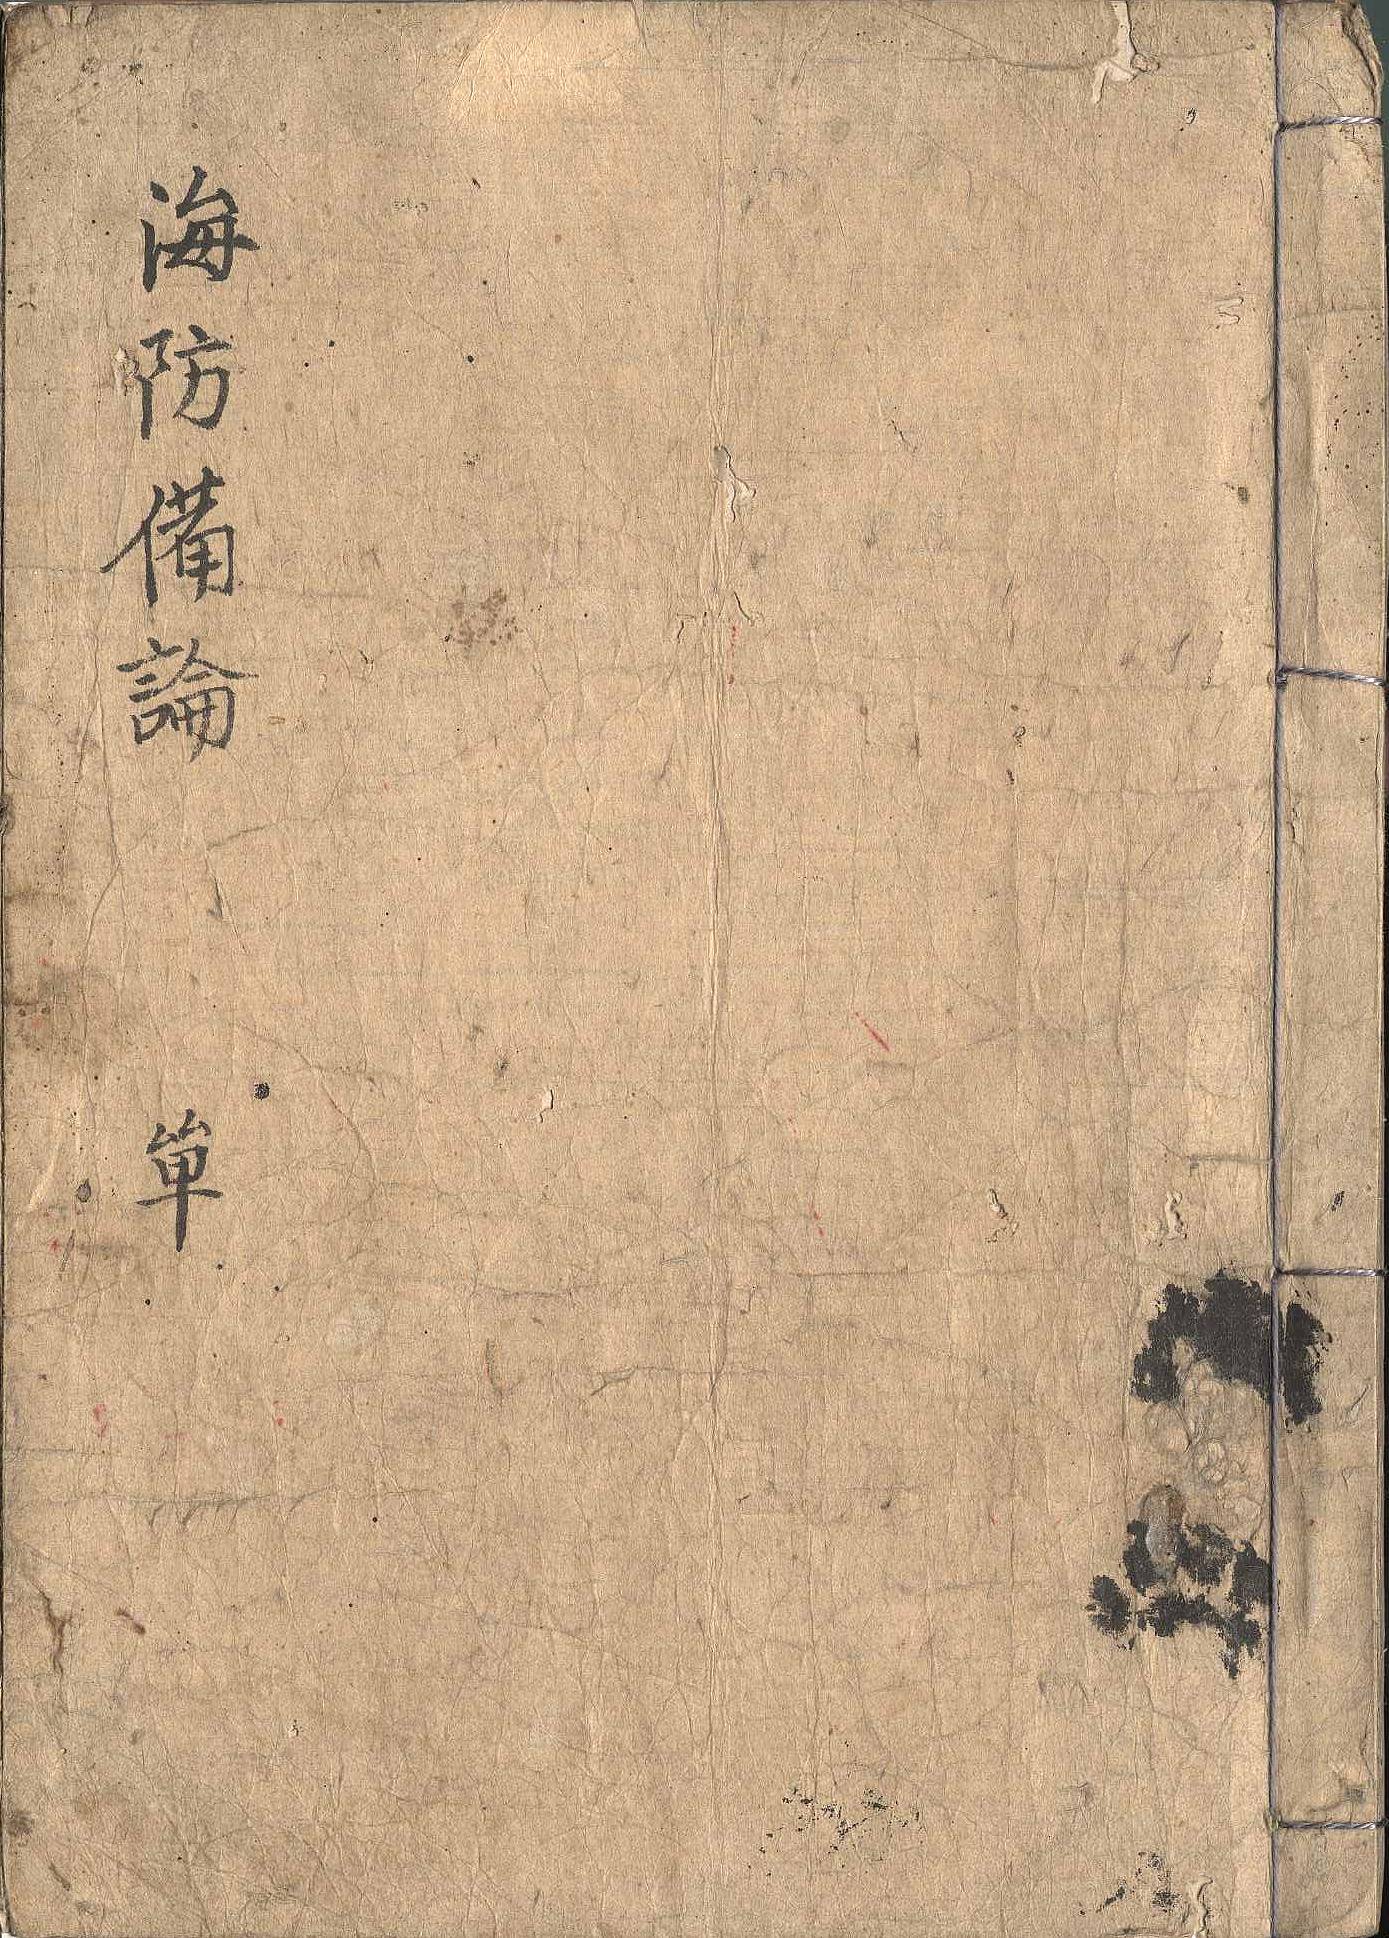 海防備論
単